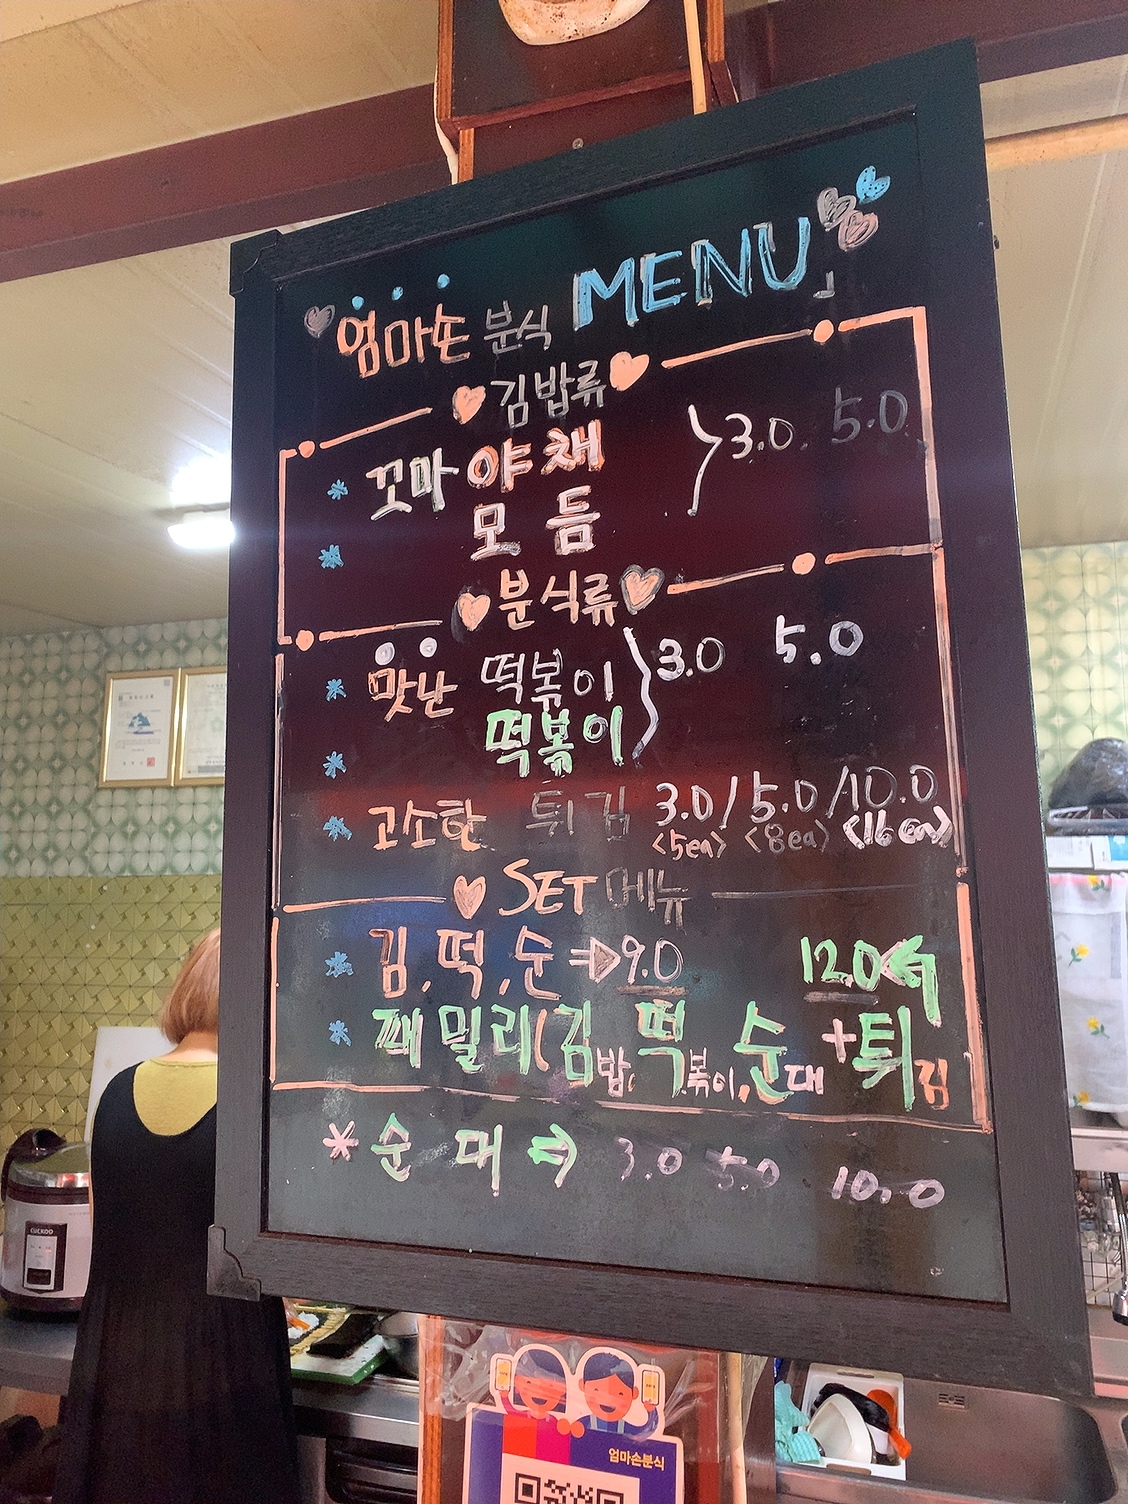 엄마손 분식 MENU
김밥류
꼬마 야채 3.0 5.0
모듬
분식류
맛난 떡볶이 3.0 5.0
떡볶이
고소한 튀김 3.0/5.0/10.0
<5ea> <8ea> <16ea>
SET 메뉴
김.떡.순 ⇒ 9.0 12.0
패밀리(김밥, 떡볶이, 순대 + 튀김
* 순대 ⇒ 3.0 5.0 10.0
CUCKOO
엄마손분식